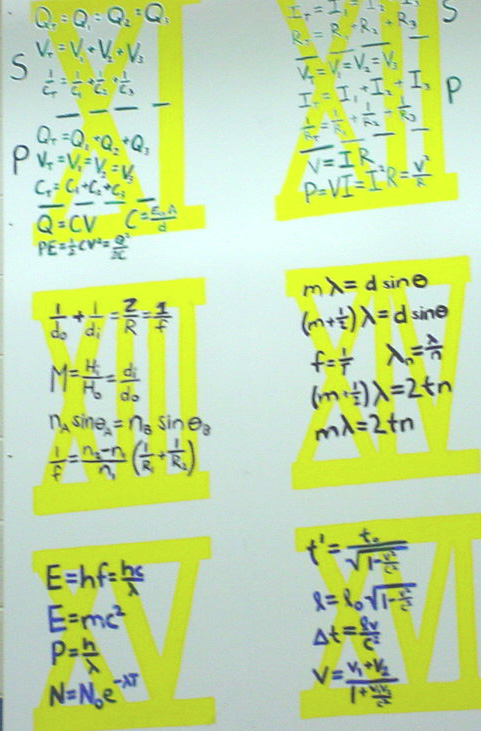 Q_T = Q_1 = Q_2 = Q_3
V_T = V_1 + V_2 + V_3
S
1/C_T = 1/C_1 + 1/C_2 + 1/C_3
Q_T = Q_1 + Q_2 + Q_3
P
V_T = V_1 = V_2 = V_3
C_T = C_1 + C_2 + C_3
Q = CV C = E_0 A/d
PE = 1/2 CV² = Q²/2C
I_T = I_1 = I_2 = I_3
S
R_T = R_1 + R_2 + R_3
V_T = V_1 = V_2 = V_3
I_T = I_1 + I_2 + I_3
P
1/R_T = 1/R_1 + 1/R_2 + 1/R_3
V = IR
P = VI = I²R = V²/R
XIII
1/d_o + 1/d_i = 2/R = 1/f
M = H_i/H_o = d_i/d_o
n_A sinθ_A = n_B sinθ_B
1/f = n_2-n_1/n_1 (1/R_1 + 1/R_2)
XIV
mλ = d sinθ
(m+1/2)λ = d sinθ
f = 1/T λ_n = λ/n
(m+1/2)λ = 2tn
mλ = 2tn
XV
E = hf = hc/λ
E = mc²
P = h/λ
N = N_0 e^-λT
XVI
t' = t_0/√1-v²/c²
l = l_0 √1-v²/c²
Δt = lv/c²
V = v_1+v_2/1+v_1v_2/c²